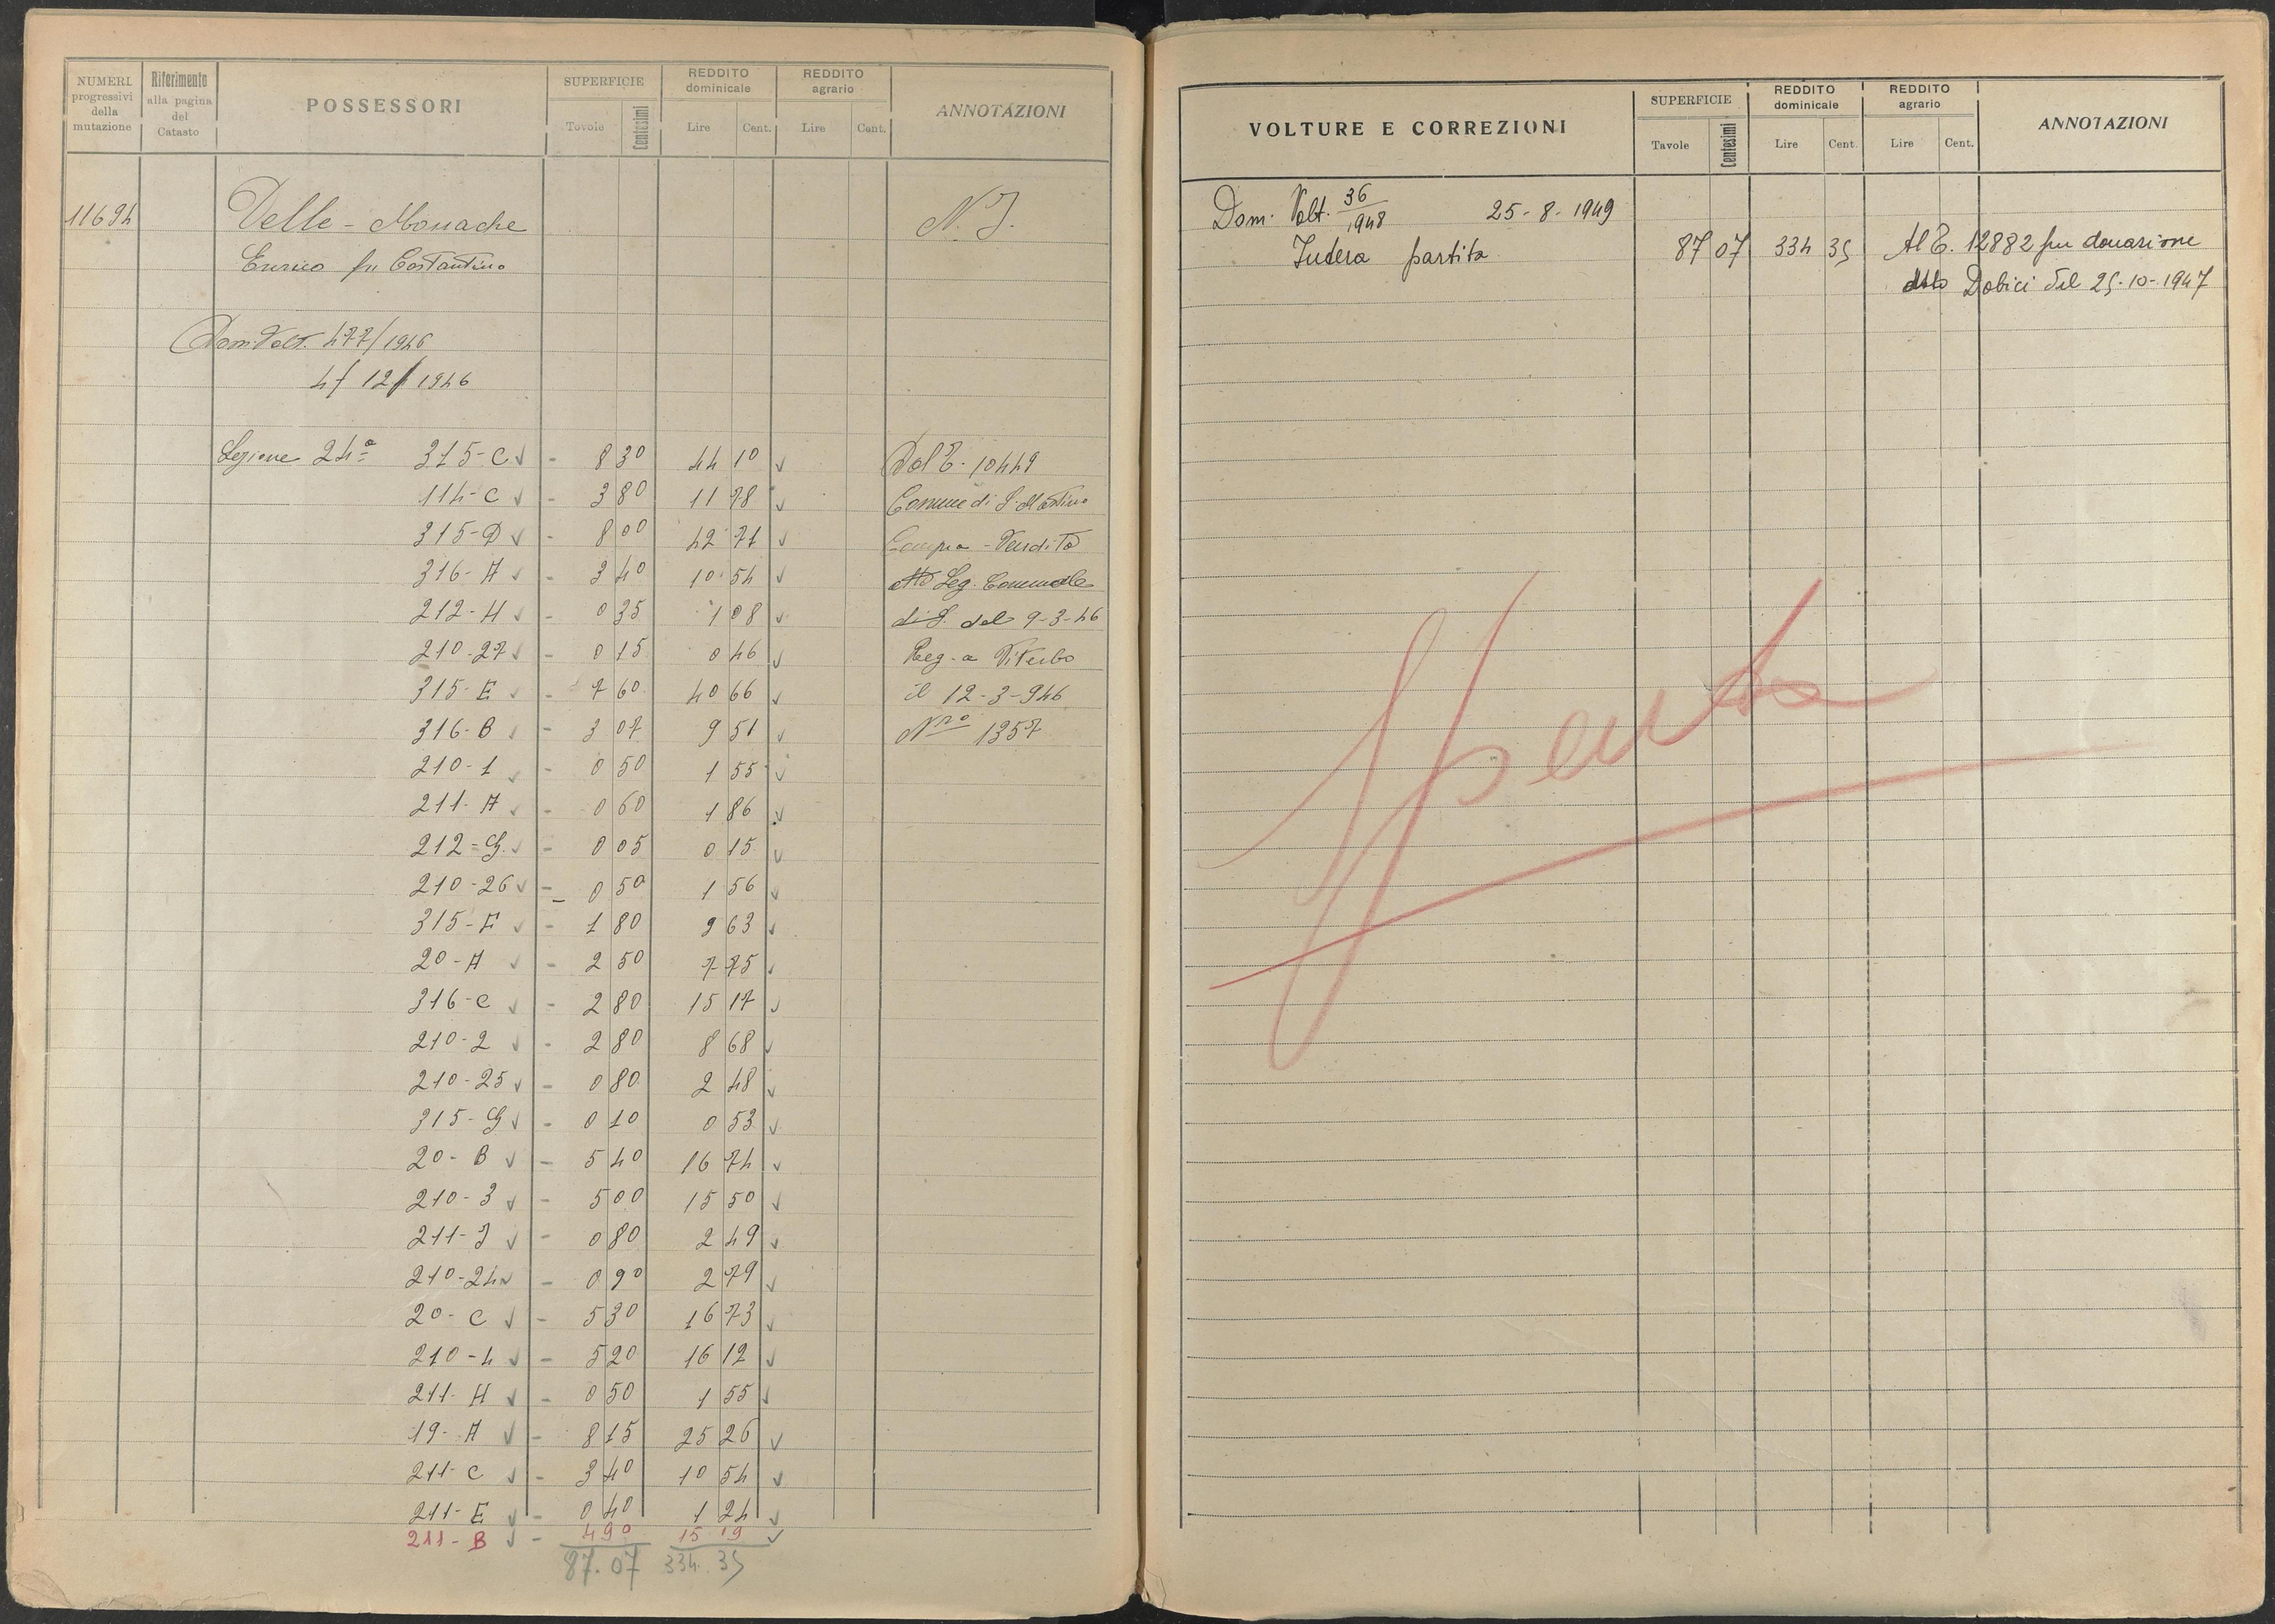 NUMERI progressivi della mutazione | Riferimento alla pagina del Catasto | POSSESSORI | SUPERFICIE Tavole Centesimi | REDDITO dominicale Lire Cent. | REDDITO agrario Lire Cent. | ANNOTAZIONI
11694 Delle-Monache N. I.
Enrico fu Costantino
Dom. Volt. 477/1946
4/12/1946
Sezione 24ª 315-C √ - 8 30 44 10 √ Dal P. 10449
114-C √ - 3 80 11 78 √ Comune di S. Martino
315-D √ - 8 00 42 71 √ Compra-Vendita
316-A √ - 3 40 10 54 √ Atto Seg. Comunale
212-H √ - 0 35 1 08 √ di S. del 9-3-46
210-27 √ - 0 15 0 46 √ Reg. a Viterbo
315-E √ - 7 60 40 66 √ il 12-3-946
316-B √ - 3 07 9 51 √ Nro 1357
210-1 √ - 0 50 1 55 √
211-A √ - 0 60 1 86 √
212-G. √ - 0 05 0 15 √
210-26 √ - 0 50 1 56 √
315-F √ - 1 80 9 63 √
20-A √ - 2 50 7 75 √
316-C √ - 2 80 15 17 √
210-2 √ - 2 80 8 68 √
210-25 √ - 0 80 2 48 √
315-G √ - 0 10 0 53 √
20-B √ - 5 40 16 74 √
210-3 √ - 5 00 15 50 √
211-I √ - 0 80 2 49 √
210-24 √ - 0 90 2 79 √
20-C √ - 5 30 16 73 √
210-4 √ - 5 20 16 12 √
211-H √ - 0 50 1 55 √
19-A √ - 8 15 25 26 √
211-C √ - 3 40 10 54 √
211-E √ - 0 40 1 24 √
211-B √ - 4 90 15 19 √
87.07 334.35
VOLTURE E CORREZIONI | SUPERFICIE Tavole Centesimi | REDDITO dominicale Lire Cent. | REDDITO agrario Lire Cent. | ANNOTAZIONI
Dom. Volt. 36/948 25-8-1949
Intera partita 87 07 334 35 Al P. 12882 per donazione
atto Dobici del 25-10-1947
Spenta